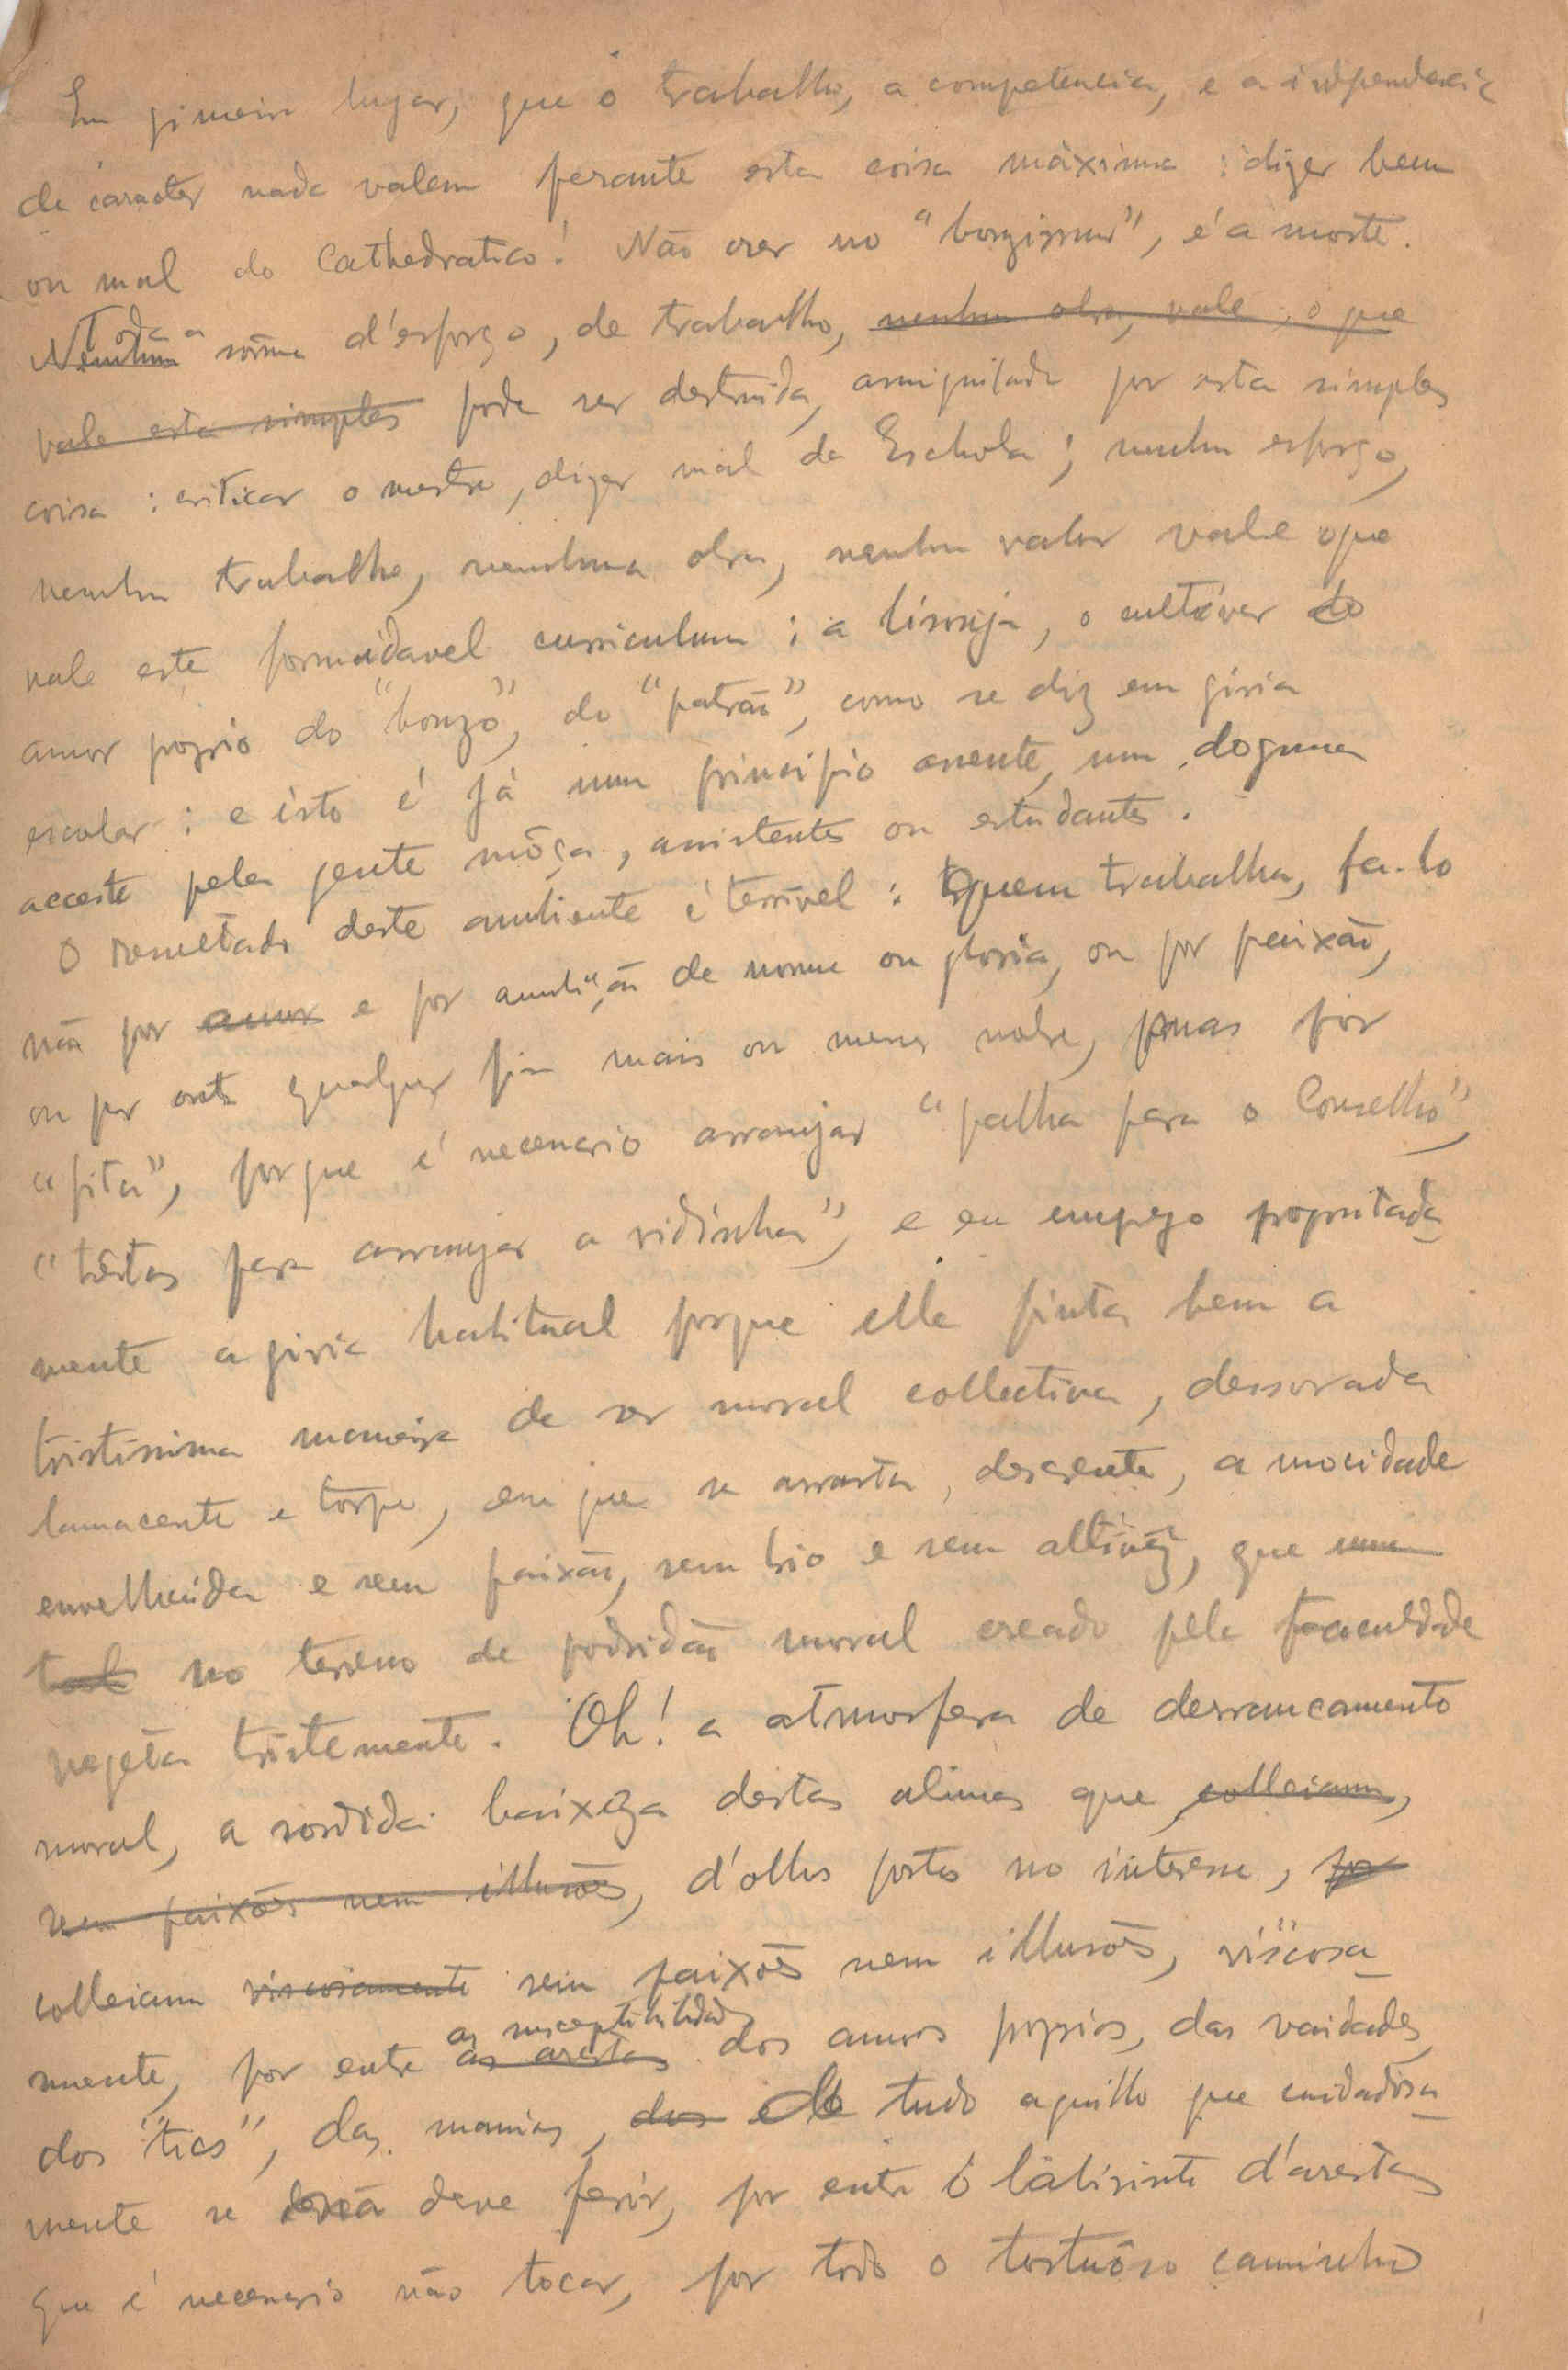 Em primeiro lugar, que o trabalho, a competencia, e a independencia
de caracter nada valem perante esta coisa máxima: dizer bem
ou mal do Cathedratico! Não crer no "bonzismo", é a morte.
Nenhuma Toda a sôma d'esforço, de trabalho, nenhum obra, vale, o que
vale esta simples pode ser destruida, aniquilada por esta simples
coisa: criticar o mestre, dizer mal da Eschola; nenhum esforço,
nenhum trabalho, nenhuma obra, nenhum valor vale o que
vale este formidavel curriculum: a lisonja, o cultivar do
amor proprio do "bonzo", do "patrão", como se diz em giria
escolar: e isto é já um principio assente, um dogma
acceite pela gente môça, assistentes ou estudantes.
O resultado deste ambiente é terrivel: quem trabalha, fa-lo
não por amor e por ambição de nome ou gloria, ou por paixão,
ou por outro qualquer fim mais ou menos nobre, mas por
"fita", porque é necessario arranjar "palha para o Conselho",
"têtas para arranjar a vidinha", e eu emprego propositada
mente a giria habitual porque ella pinta bem a
tristissima maneira de ser moral collectiva, dessorada
lamacenta e torpe, em que se arrasta, descrente, a mocidade
envelhecida e sem paixão, sem brio e sem altivêz, que num
tal no terreno de podridão moral creado pela Faculdade
vegeta tristemente. Oh! a atmosfera de derrancamento
moral, a sordida baixeza destas almas que colleiam,
sem paixões nem illusões, d'olhos postos no interesse, por
colleiam viscosamente sem paixões nem illusões, viscosa
mente, por entre as arestas as susceptibilidades dos amores proprios, das vaidades,
dos "tics", das manias, dos de tudo aquillo que cuidadosa
mente se deve ferir, por entre o labirinto d'arestas
que é necessario não tocar, por todo o tortuôso caminho